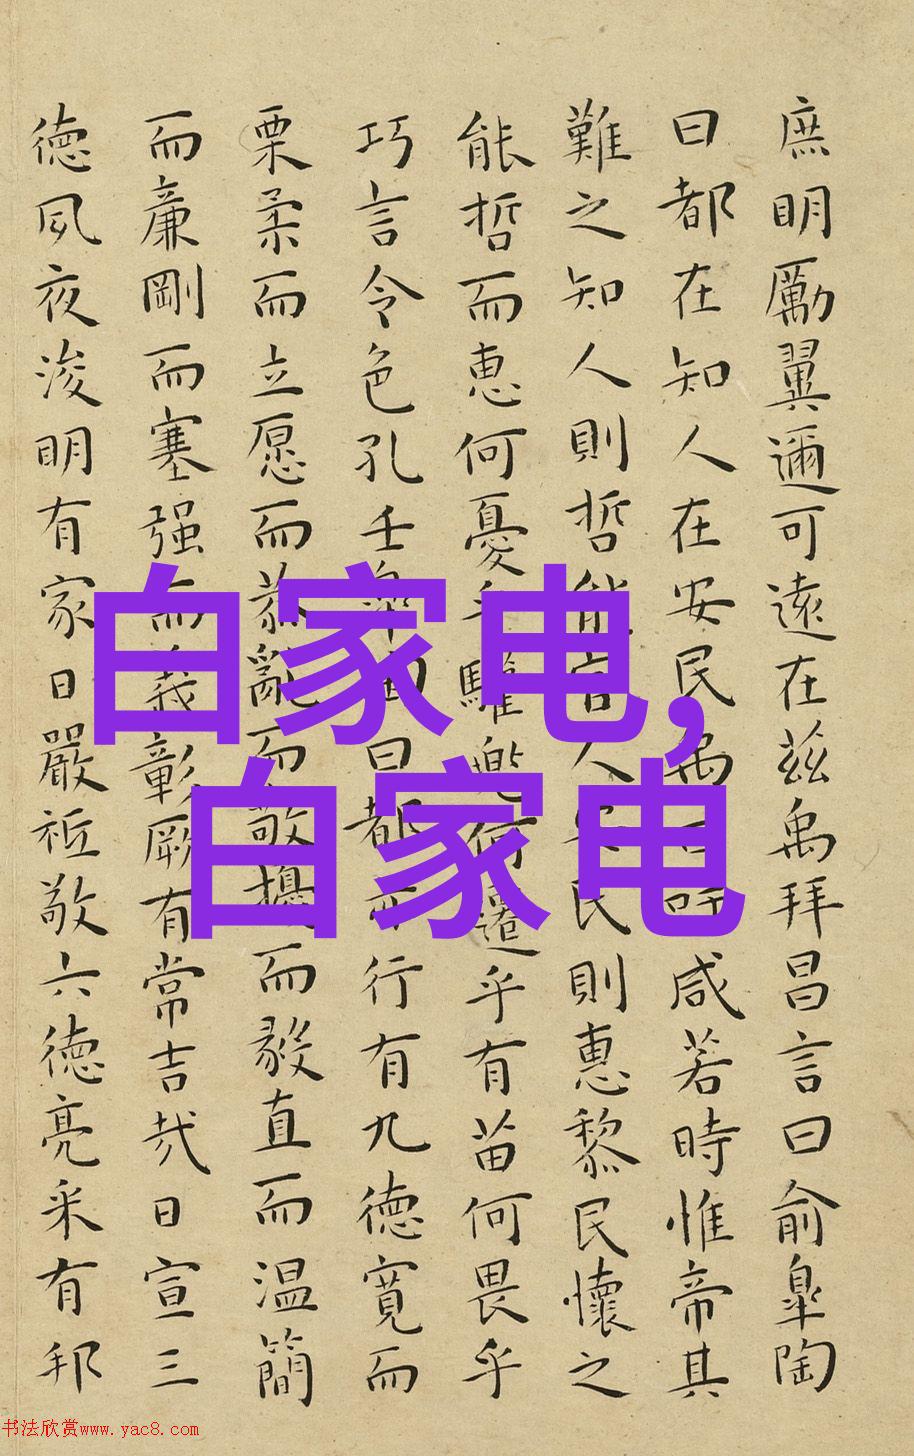 庶明勵翼邇可遠在茲禹拜昌言曰俞皐陶
曰都在知人在安民禹曰吁咸若時惟帝其
難之知人則哲能官人安民則惠黎民懷之
能哲而惠何憂乎驩兜何遷乎有苗何畏乎
巧言令色孔壬皐陶曰都亦行有九德寬而
栗柔而立愿而恭亂而敬擾而毅直而温簡
而廉剛而塞强而義彰厥有常吉哉日宣三
德夙夜浚明有家日嚴祗敬六德亮采有邦
白家电,
白家电
书法欣赏www.yac8.com